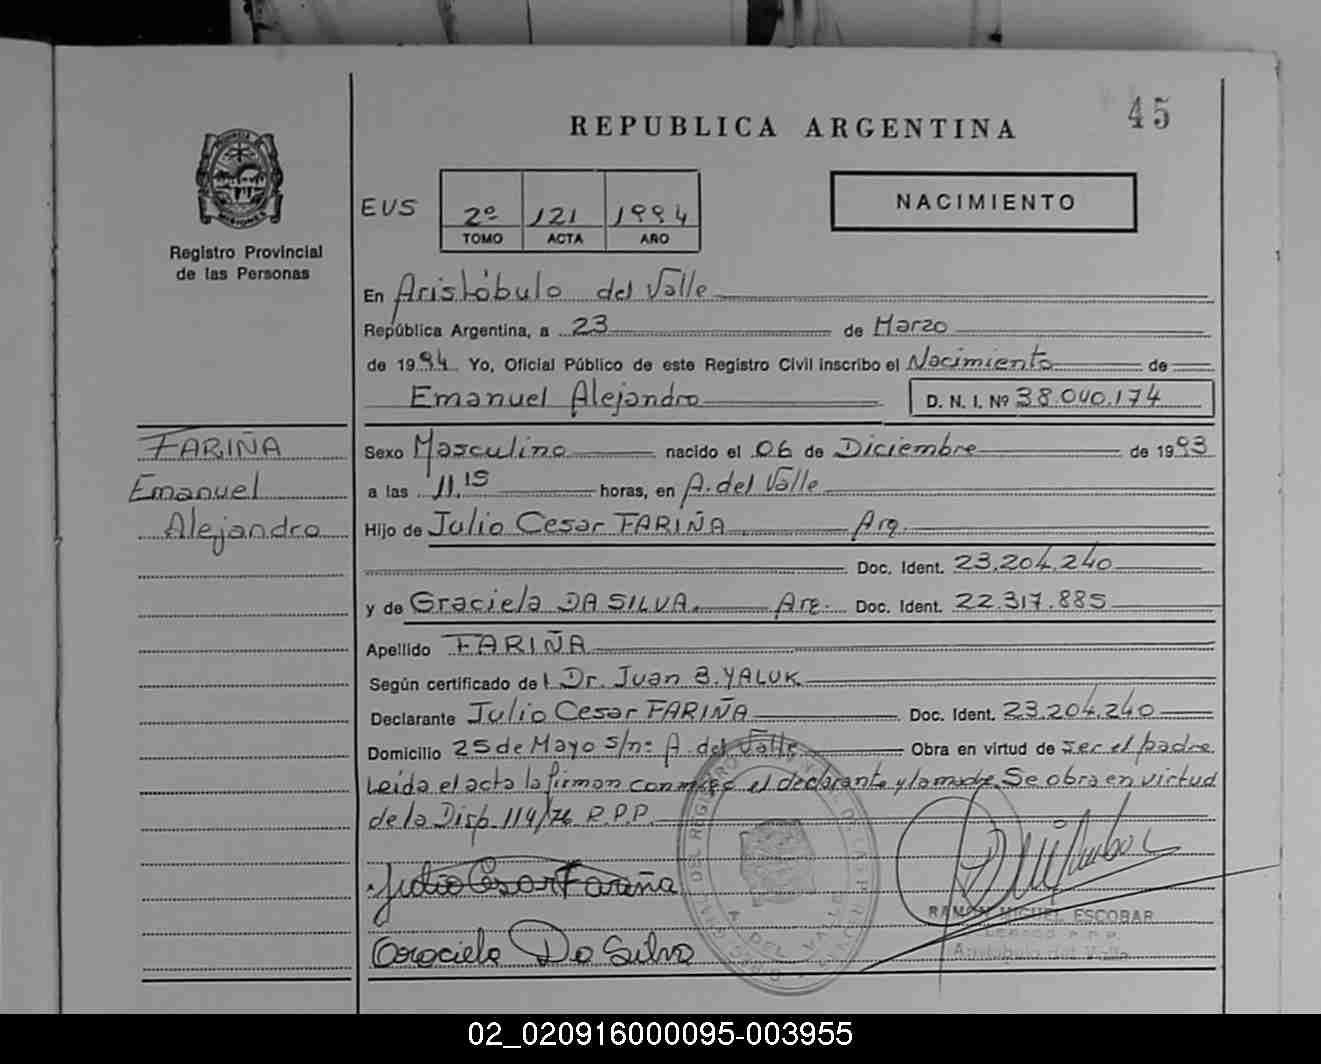 45
REPUBLICA ARGENTINA
Registro Provincial
de las Personas
EUS
2º 121 1994
TOMO ACTA AÑO
NACIMIENTO
En Aristóbulo del Valle
República Argentina, a 23 de Marzo
de 1994 Yo, Oficial Público de este Registro Civil inscribo el Nacimiento de
Emanuel Alejandro D. N. I. Nº 38.040.174
FARIÑA
Emanuel
Alejandro
Sexo Masculino nacido el 06 de Diciembre de 1993
a las 11,15 horas, en A. del Valle
Hijo de Julio Cesar FARIÑA Arg.
Doc. Ident. 23.204.240
y de Graciela DA SILVA. Arg. Doc. Ident. 22.317.885
Apellido FARIÑA
Según certificado del Dr. Juan B. YALUK
Declarante Julio Cesar FARIÑA Doc. Ident. 23.204.240
Domicilio 25 de Mayo s/nº A. del Valle Obra en virtud de ser el padre.
Leída el acta la firman conmigo el declarante y la madre. Se obra en virtud
de la Disp. 114/76 R.P.P.
Julio Cesar Fariña
Graciela Da Silva
RAMON MIGUEL ESCOBAR
Aristóbulo del Valle
02_020916000095-003955